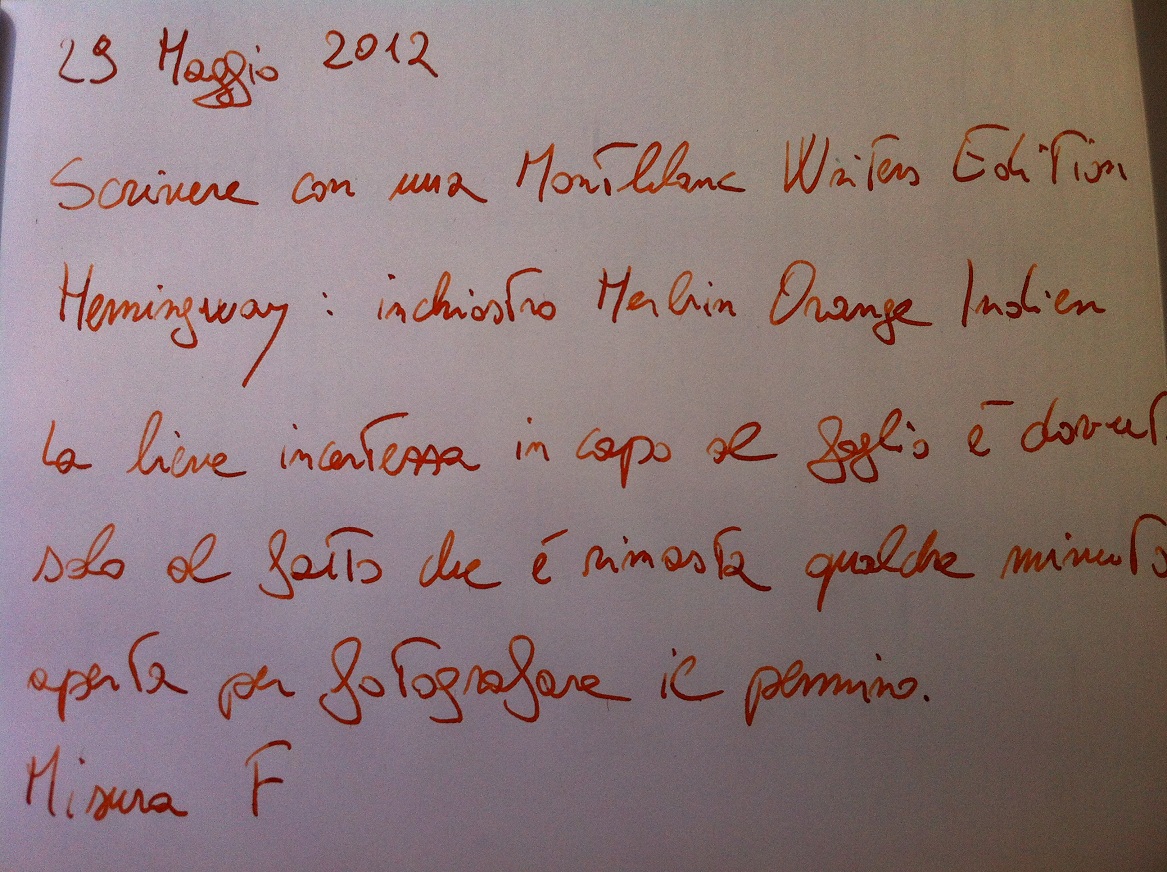 29 Maggio 2012
Scrivere con una Montblanc Writers Edition
Hemingway : inchiostro Herbin Orange Indien
La lieve incertezza in capo al foglio è dovut
solo al fatto che è rimasta qualche minuto
aperta per fotografare il pennino.
Misura F